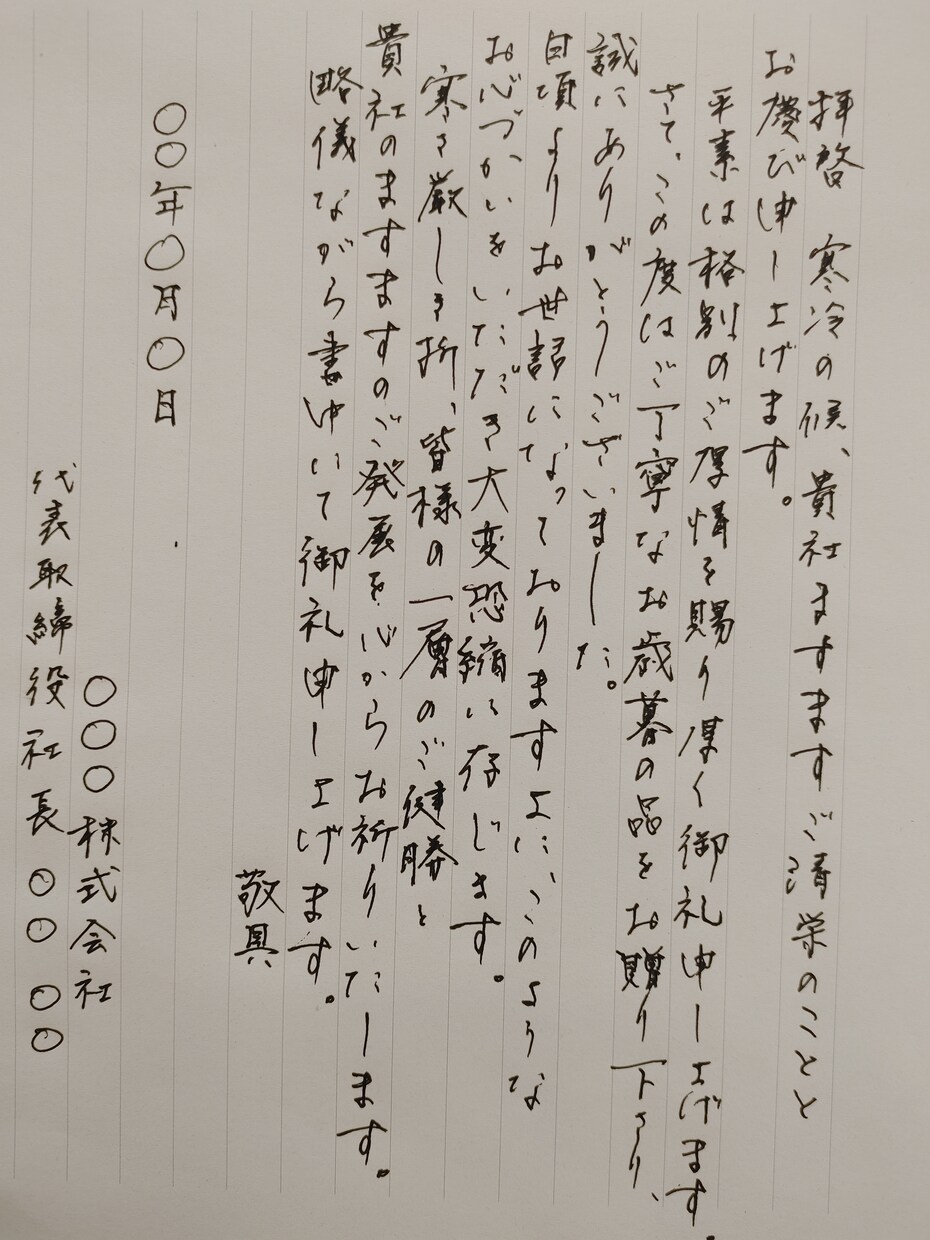 拝啓　寒冷の候、貴社ますますご清栄のことと
お慶び申し上げます。
平素は格別のご厚情を賜り厚く御礼申し上げます。
さて、この度はご丁寧なお歳暮の品をお贈り下さり、
誠にありがとうございました。
日頃よりお世話になっておりますよに、このような
お心づかいをいただき大変恐縮に存じます。
寒さ厳しき折、皆様の一層のご健勝と
貴社のますますのご発展を心からお祈りいたします。
略儀ながら書中にて御礼申し上げます。
敬具
〇〇年〇月〇日
〇〇〇株式会社
代表取締役社長〇〇〇〇